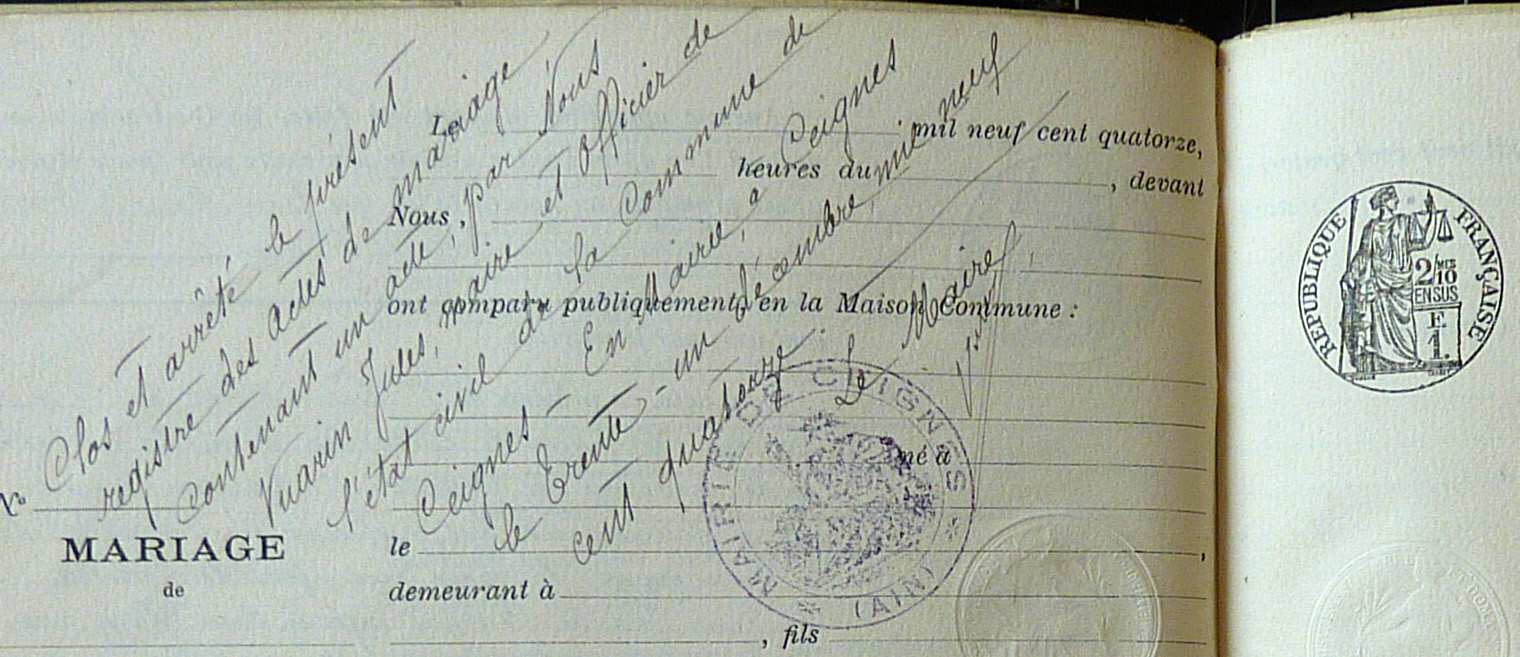 Le , mil neuf cent quatorze,
heures du , devant
Nous,
ont comparu publiquement en la Maison Commune :
né à
le ,
demeurant à
, fils
No
MARIAGE
de
Clos et arrêté le présent
registre des actes de mariage
contenant un acte, par Nous
Vuarin Jules, maire et Officier de
l'état civil de la Commune de
Ceignes - En Mairie, à Ceignes
le trente-un décembre, mil neuf
cent quatorze. Le Maire,
MAIRIE DE CEIGNES
(AIN)
RÉPUBLIQUE FRANÇAISE
2/10
EN SUS
F.
1.